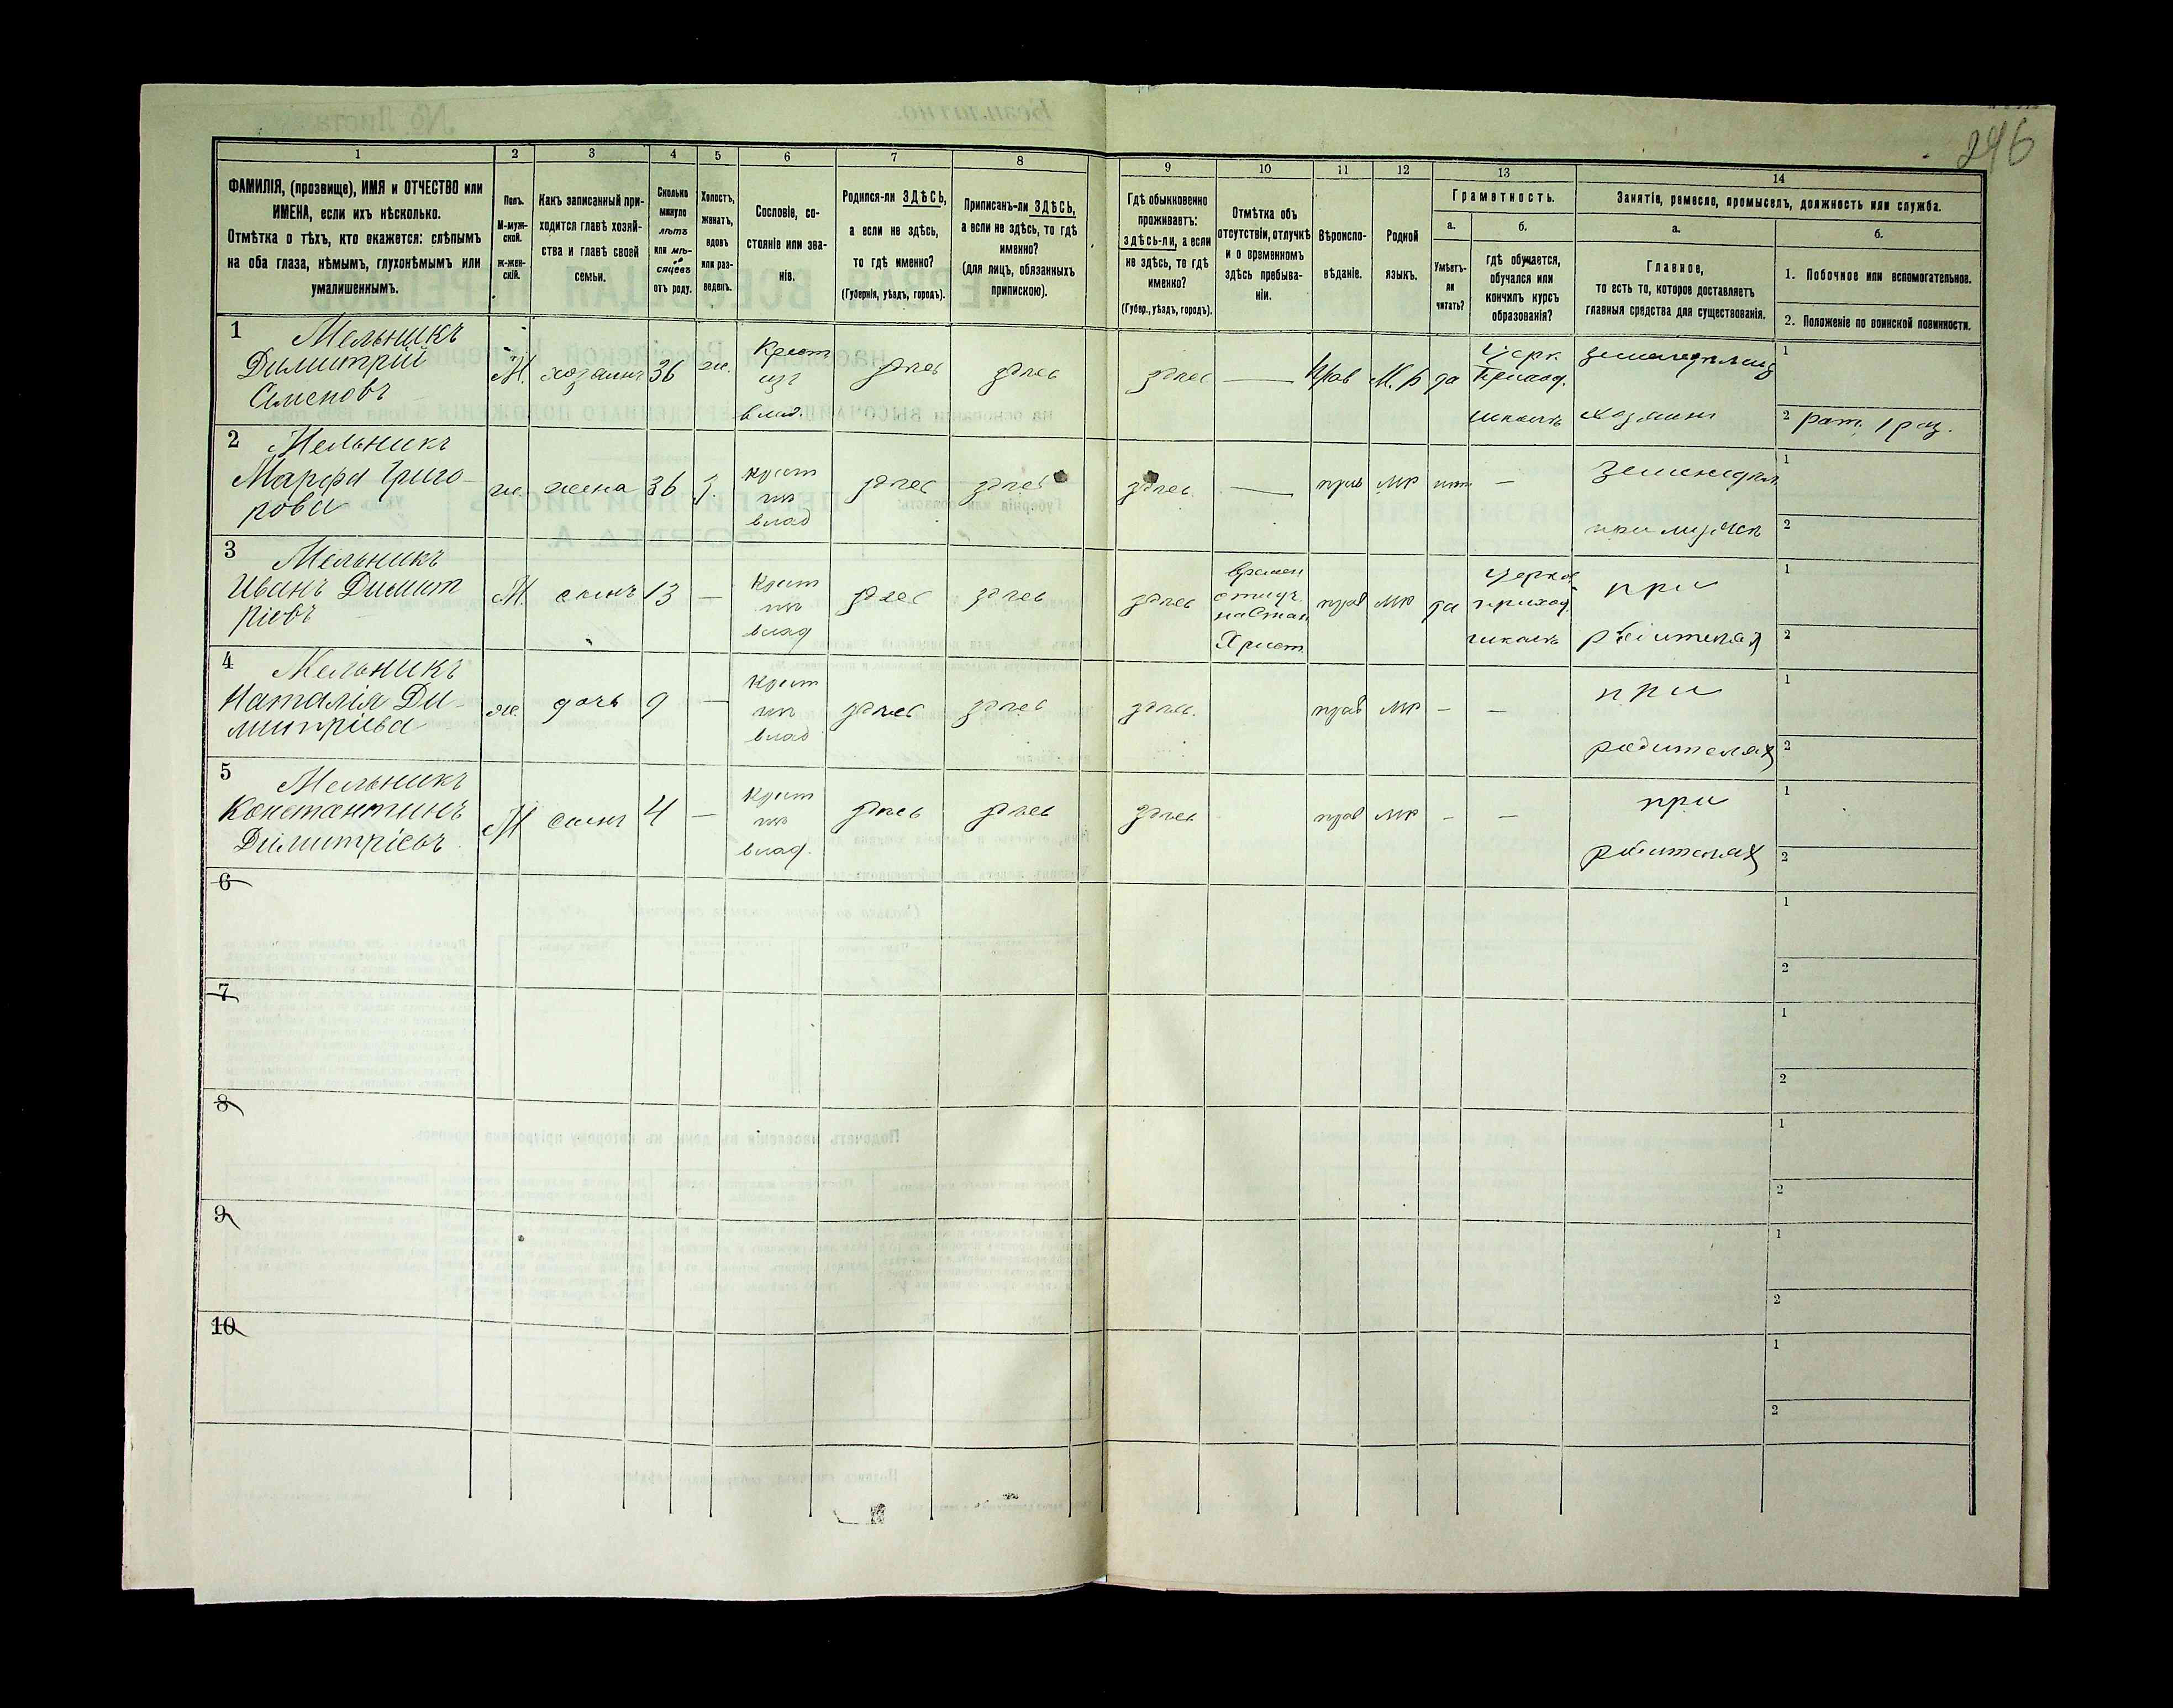 246
1
2
3
4
5
6
7
8
9
10
11
12
13
14
ФАМИЛІЯ, (прозвище), ИМЯ и ОТЧЕСТВО или
ИМЕНА, если ихъ нѣсколько.
Отмѣтка о тѣхъ, кто окажется: слѣпымъ
на оба глаза, нѣмымъ, глухонѣмымъ или
умалишеннымъ.
Полъ.
М-муж-
ской.
ж-жен-
скій.
Какъ записанный при-
ходится главѣ хозяй-
ства и главѣ своей
семьи.
Сколько
минуло
лѣтъ
или мѣ-
сяцевъ
отъ роду.
Холостъ,
женатъ,
вдовъ
или раз-
веденъ.
Сословіе, со-
стояніе или зва-
ніе.
Родился-ли ЗДѢСЬ,
а если не здѣсь,
то гдѣ именно?
(Губернія, уѣздъ, городъ).
Приписанъ-ли ЗДѢСЬ,
а если не здѣсь, то гдѣ
именно?
(для лицъ, обязанныхъ
припискою).
Гдѣ обыкновенно
проживаетъ:
здѣсь-ли, а если
не здѣсь, то гдѣ
именно?
(Губер., уѣздъ, городъ).
Отмѣтка объ
отсутствіи, отлучкѣ
и о временномъ
здѣсь пребыва-
ніи.
Вѣроиспо-
вѣданіе.
Родной
языкъ.
Грамотность.
а.
Умѣетъ-
ли
читать?
б.
гдѣ обучается,
обучался или
кончилъ курсъ
образованія?
Занятіе, ремесло, промыселъ, должность или служба.
а.
Главное,
то есть то, которое доставляетъ
главныя средства для существованія.
б.
1. Побочное или вспомогательное.
2. Положеніе по воинской повинности.
1 Мельникъ
Димитрій
Семеновъ
М. хозаинъ 36 ж.
Крест
изъ
влад.
здѣсь здѣсь здѣсь — Прав М. р да
Церк.
Приход.
школѣ
хозаинъ
1
2 рат. 1 раз.
2 Мельникъ
Марфа Григо-
рова
ж. жена 36 З.
крест
изъ
влад
здѣсь здѣсь здѣсь. — прав мр нѣт —
1
2
3 Мельникъ
Иванъ Димит
ріевъ
М. сынъ 13 —
Крест
изъ
влад
здѣсь здѣсь здѣсь
прав мр да
Церков
приход.
школѣ
при
родителях
1
2
4 Мельникъ
Наталія Ди-
митріева
ж. дочь 9 —
Крест
изъ
влад
здѣсь здѣсь здѣсь. прав мр — —
при
родителях
1
2
5 Мельникъ
Константинъ
Димитріевъ
М сынъ 4 —
Крест
изъ
влад.
здѣсь здѣсь здѣсь прав мр — —
при
родителях
1
2
6
1
2
7
1
2
8
1
2
9
1
2
10
1
2